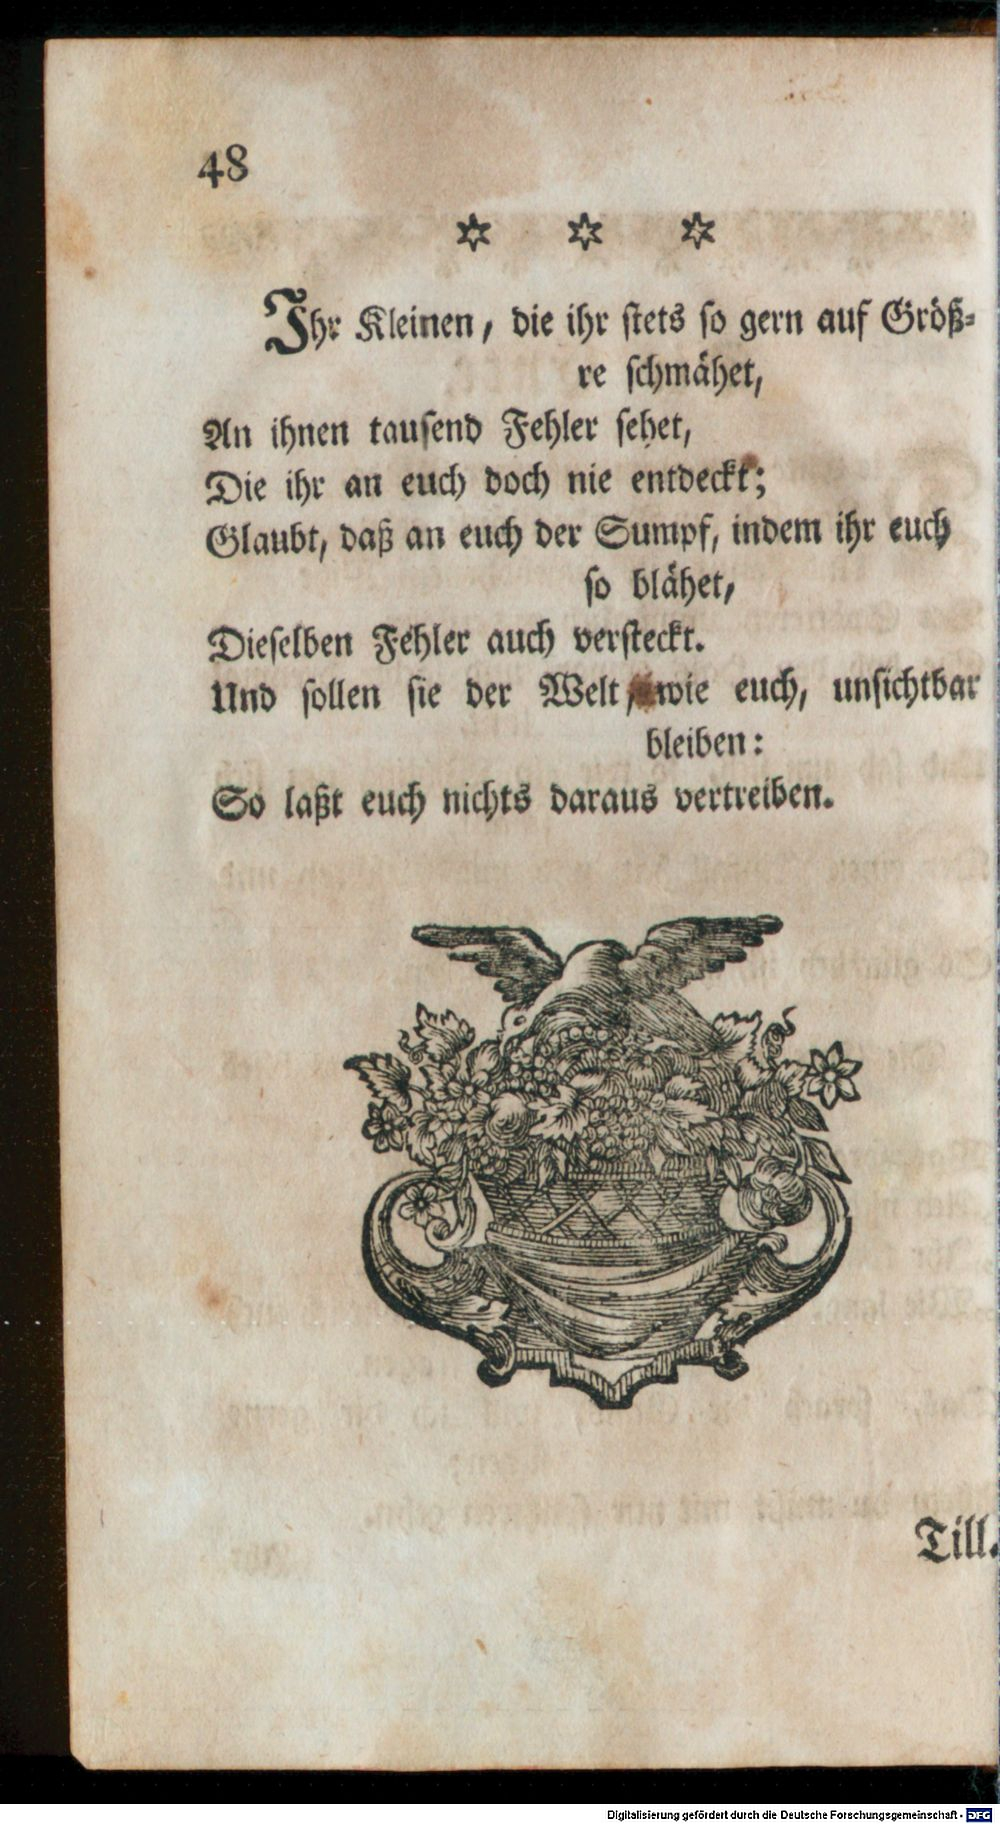 48
Ihr Kleinen, die ihr stets so gern auf Größ-
re schmähet,
An ihnen tausend Fehler sehet,
Die ihr an euch doch nie entdeckt;
Glaubt, daß an euch der Sumpf, indem ihr euch
so blähet,
Dieselben Fehler auch versteckt.
Und sollen sie der Welt, wie euch, unsichtbar
bleiben:
So laßt euch nichts daraus vertreiben.
Till.
Digitalisierung gefördert durch die Deutsche Forschungsgemeinschaft - DFG